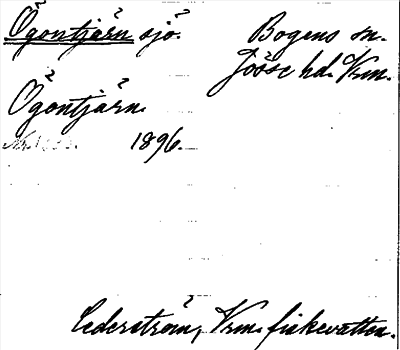 Ögontjärn sjö. Bogens sn.
Jösse hd. Vrm.
Ögontjärn.
1896.
Cederström, Vrm. fiskevatten.